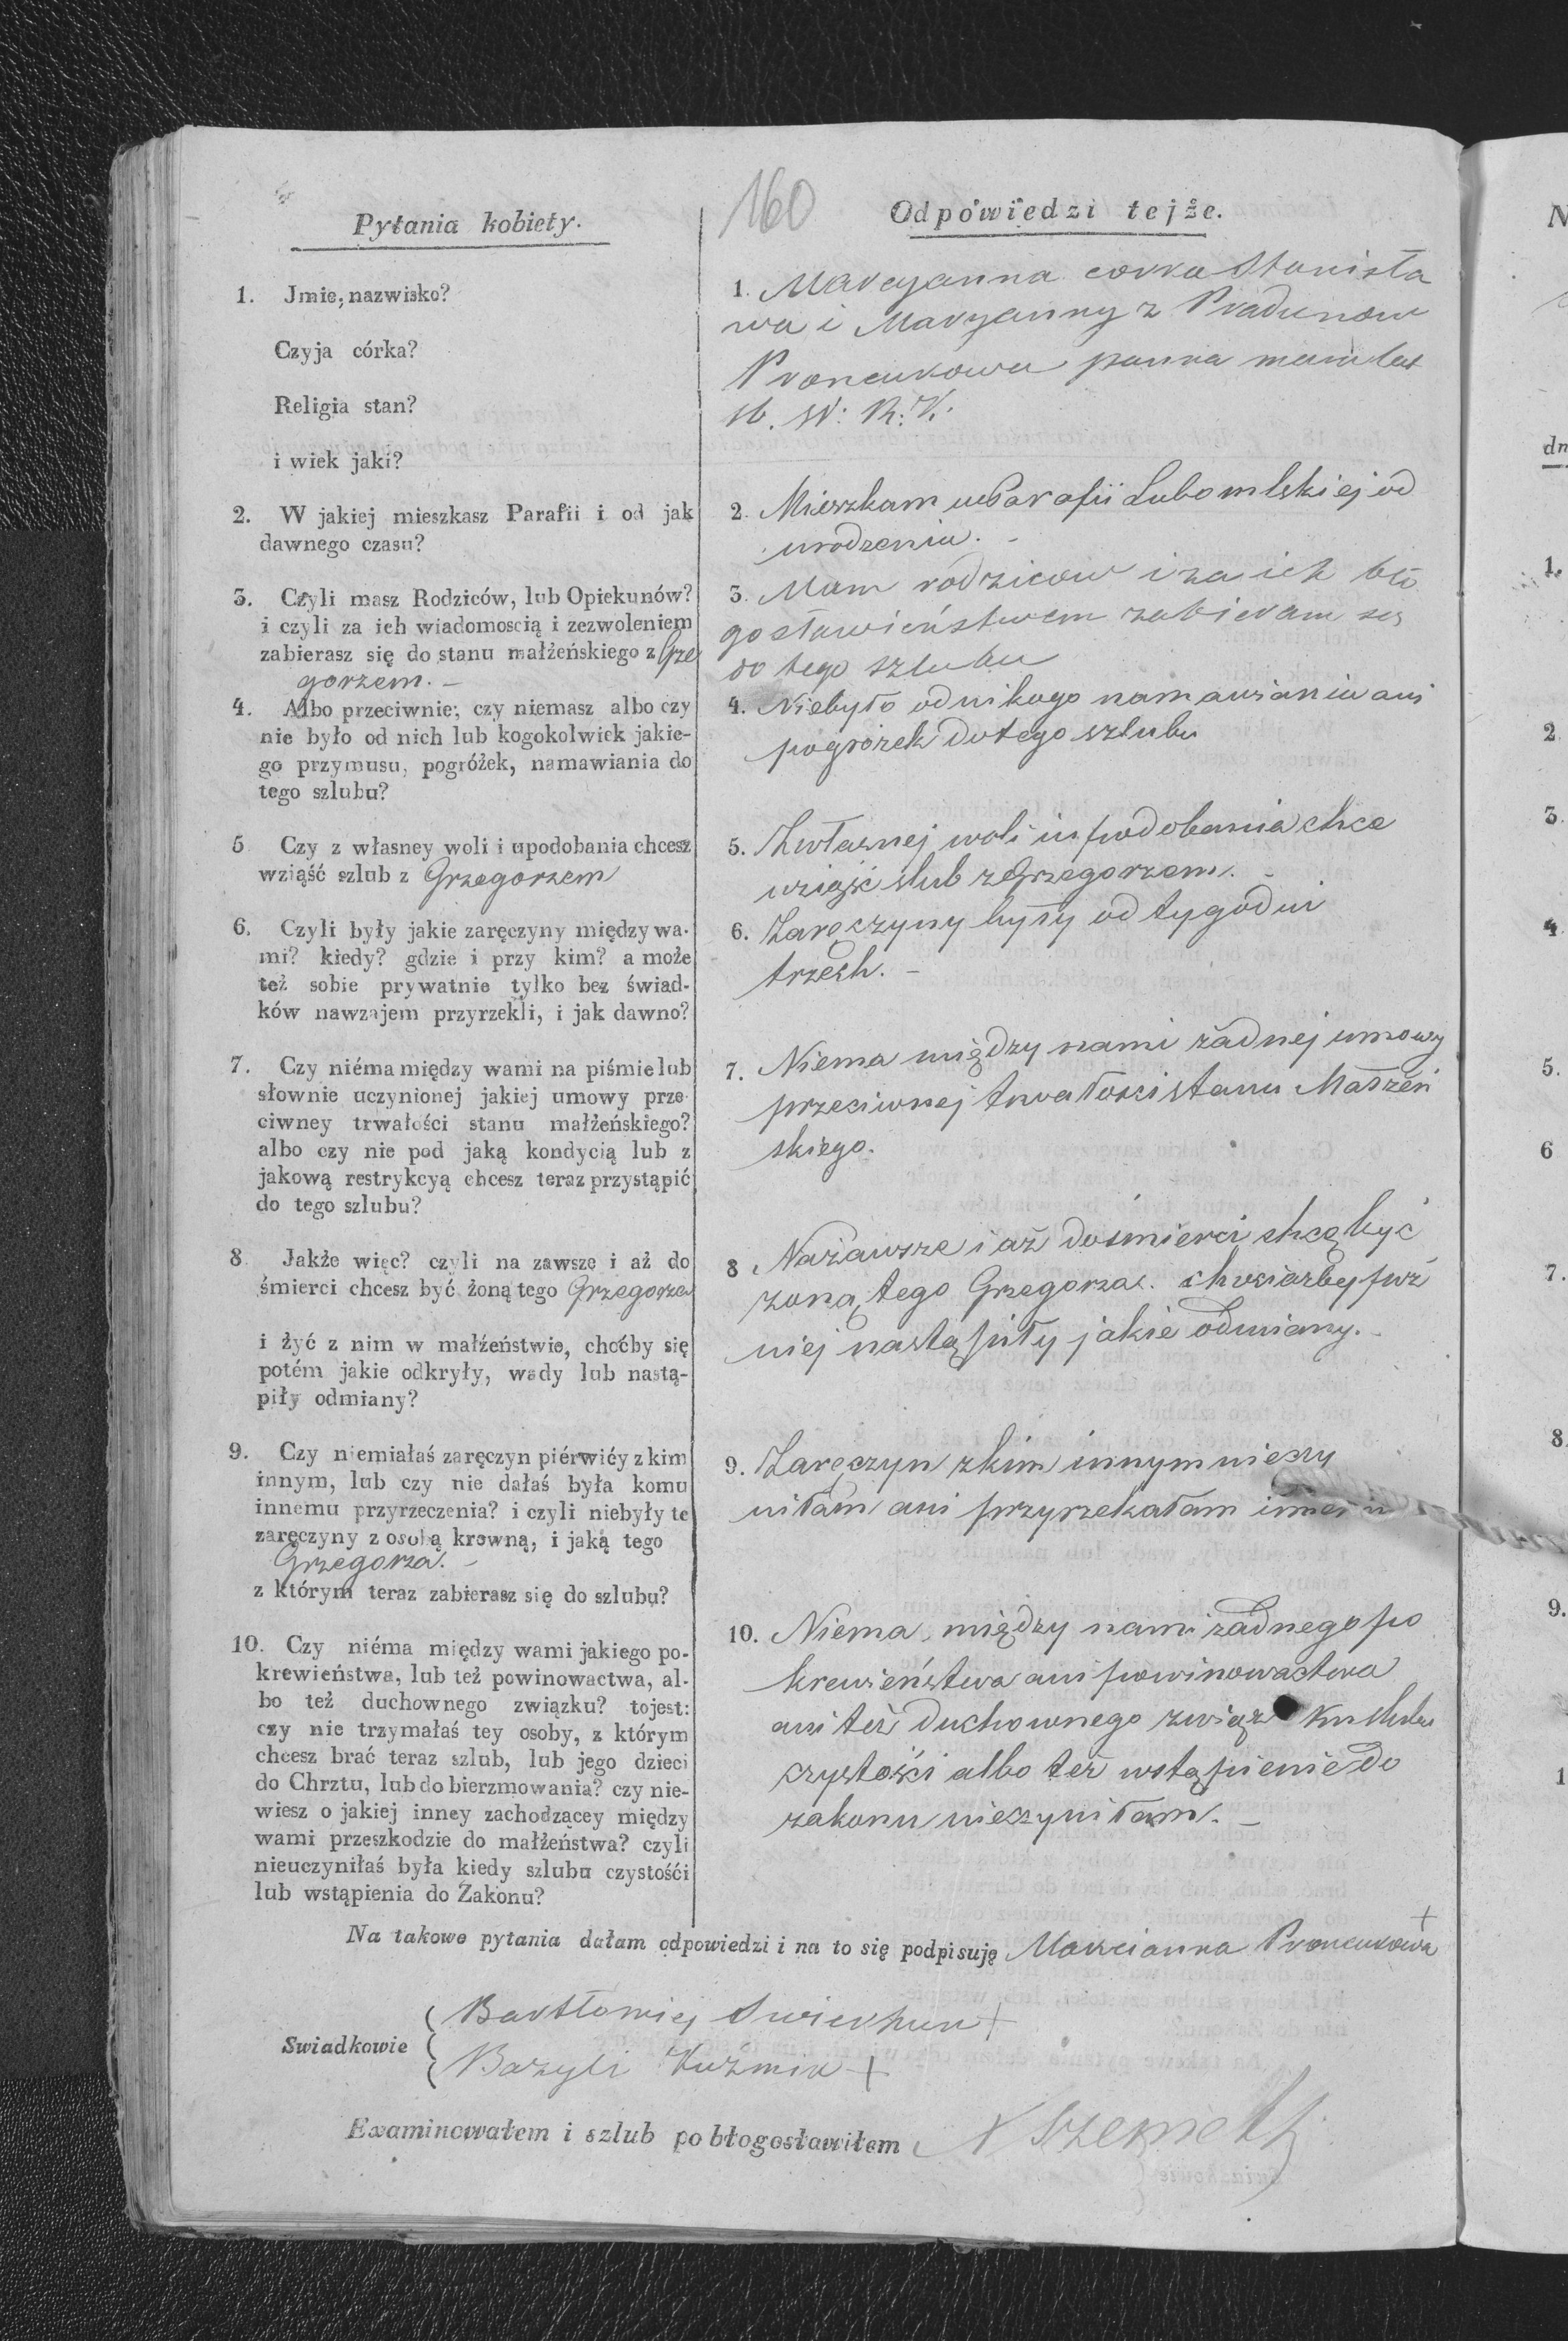 160
Pytania kobiety.
Odpowiedzi tejże.
1. Jmie, nazwisko?
Czyja córka?
Religia stan?
i wiek jaki?
1. Marcyanna corka Stanisła
wa i Maryanny z Pradunow
Proncukowa panna mam lat
W: R: K:
2. W jakiej mieszkasz Parafii i od jak
dawnego czasu?
2. Mieszkam w Parafii Lubomlskiej od
urodzenia. -
3. Czyli masz Rodziców, lub Opiekunów?
i czyli za ich wiadomoscią i zezwoleniem
zabierasz się do stanu małżeńskiego z Grze
gorzem. -
3. Mam rodziców i za ich bło
gosławieństwem zabieram się
do tego szlubu
4. Albo przeciwnie, czy niemasz albo czy
nie było od nich lub kogokolwiek jakie-
go przymusu, pogróżek, namawiania do
tego szlubu?
4. Niebyło od nikogo namawiania ani
pogrożek do tego szlubu
5 Czy z własney woli i upodobania chcesz
wziąść szlub z Grzegorzem
5. Z własnej woli i upodobania chce
wziąść slub z Grzegorzem. -
6. Czyli były jakie zaręczyny między wa-
mi? kiedy? gdzie i przy kim? a może
też sobie prywatnie tylko bez świad-
ków nawzajem przyrzekli, i jak dawno?
6. Zaręczyny były od tygodni
trzech. -
7. Czy niéma między wami na piśmie lub
słownie uczynionej jakiej umowy prze-
ciwney trwałości stanu małżeńskiego?
albo czy nie pod jaką kondycią lub z
jakową restrykcyą chcesz teraz przystąpić
do tego szlubu?
7. Niema między nami żadnej umowy
przeciwnej trwałości stanu Małżeń
skiego.
8 Jakże więc? czyli na zawsze i aż do
śmierci chcesz być żoną tego Grzegorza
i żyć z nim w małżeństwie, choćby się
potém jakie odkryły, wady lub nastą-
piły odmiany?
8 Nazawsze i aż do śmierci chcę być
żoną tego Grzegorza. chociażby puź
niej nastąpiły jakie odmiany. -
9. Czy niemiałaś zaręczyn piérwiéy z kim
innym, lub czy nie dałaś była komu
innemu przyrzeczenia? i czyli niebyły te
zaręczyny z osobą krewną, i jaką tego
Grzegorza. -
z którym teraz zabierasz się do szlubu?
9. Zaręczyn z kim innym nieczy
niłam ani przyrzekałam
10. Czy niéma między wami jakiego po-
krewieństwa, lub też powinowactwa, al-
bo też duchownego związku? tojest:
czy nie trzymałaś tey osoby, z którym
chcesz brać teraz szlub, lub jego dzieci
do Chrztu, lub do bierzmowania? czy nie-
wiesz o jakiej inney zachodzącey między
wami przeszkodzie do małżeństwa? czyli
nieuczyniłaś była kiedy szlubu czystośći
lub wstąpienia do Zakonu?
10. Niema między nami żadnego po
krewieństwa ani powinowactwa
ani też duchownego związku slubu
czystości albo też wstąpienie do
zakonu nieczyniłam. -
Na takowe pytania dałam odpowiedzi i na to się podpisuję Marcianna Proncukowa +
Swiadkowie
Bartłomiej +
Bazyli Kuźmin +
Examinowałem i szlub pobłogosławiłem